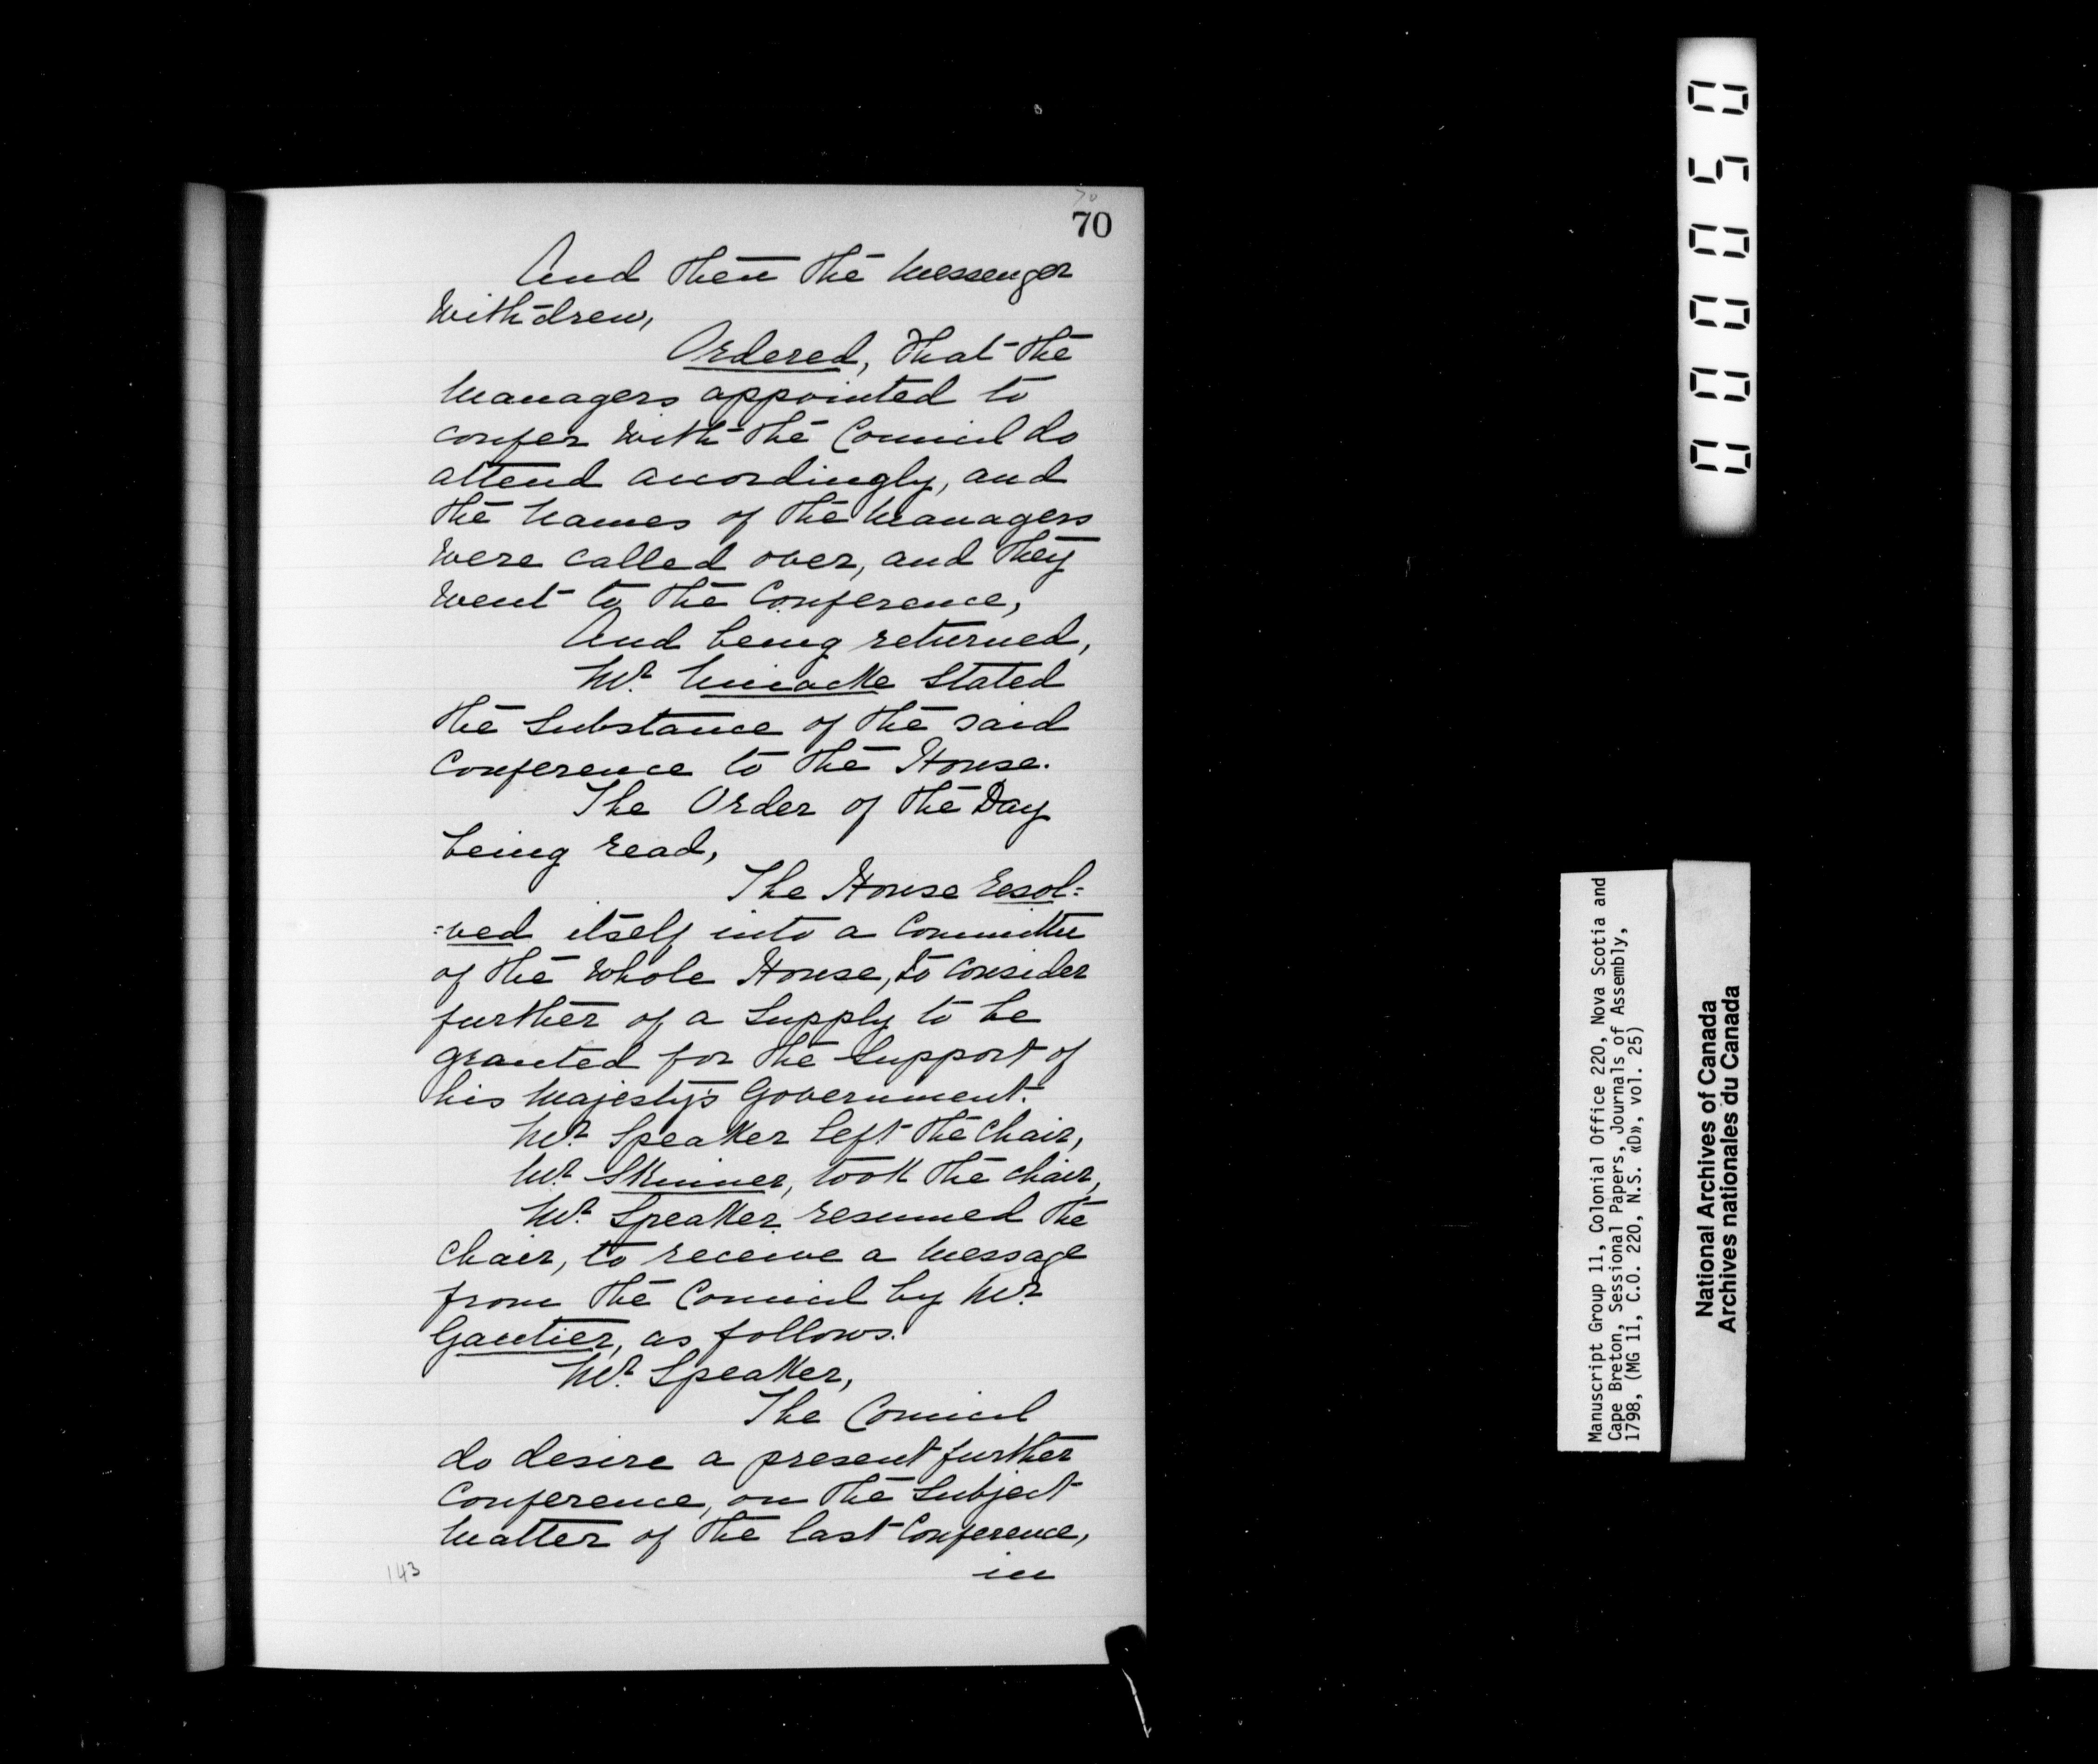 70
70
And then the Messenger
withdrew,
Ordered, That the
Managers appointed to
confer with the Council do
attend accordingly, and
the Names of the Managers
were called over, and they
went to the Conference,
And being returned,
Mr. Uniacke Stated
the Substance of the said
Conference to the House.
The Order of the Day
being read,
The House resol=
=ved itself into a Committee
of the whole House, to consider
further of a Supply to be
granted for the Support of
his Majesty's Government.
Mr. Speaker left the Chair,
Mr. Skinner, took the chair,
Mr. Speaker resumed the
Chair, to receive a Message
from the Council by Mr.
Gautier, as follows.
Mr. Speaker,
The Council
do desire a present further
Conference, on the Subject
Matter of the last Conference,
in
143
000050
Manuscript Group 11, Colonial Office 220, Nova Scotia and
Cape Breton, Sessional Papers, Journals of Assembly,
1798, (MG 11, C.O. 220, N.S. «D», vol. 25)
National Archives of Canada
Archives nationales du Canada